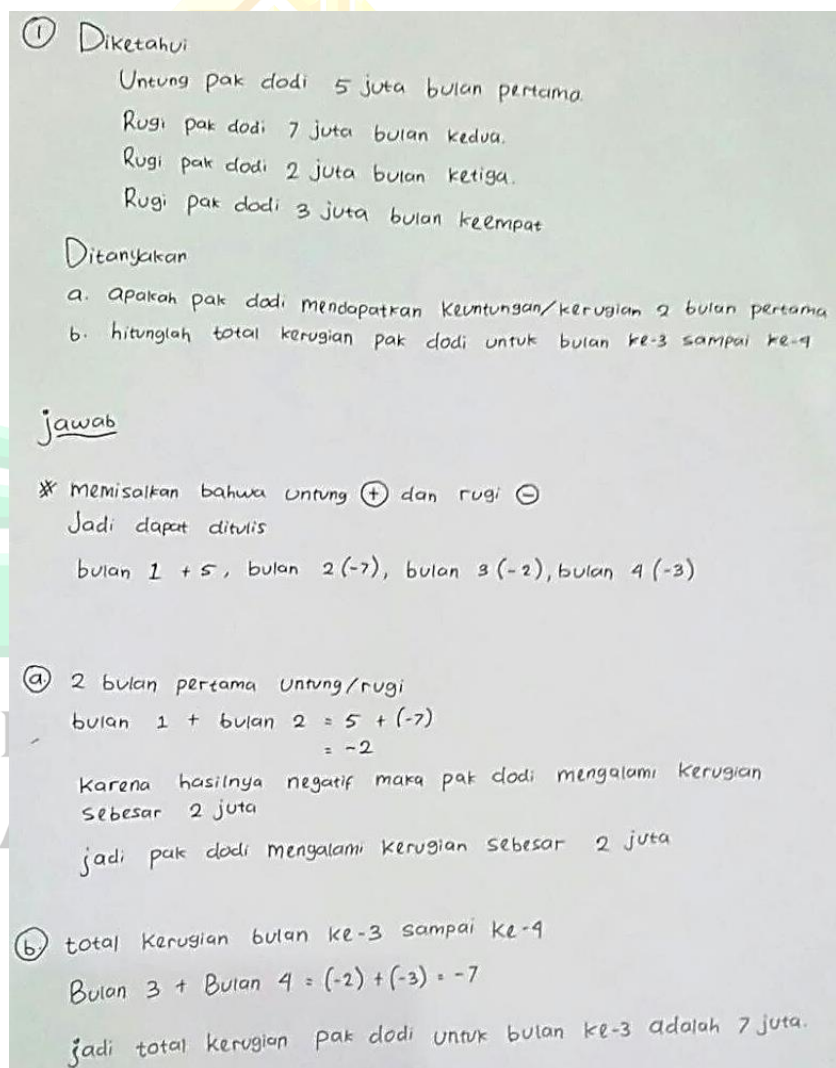 ① Diketahui
Untung pak dodi 5 juta bulan pertama.
Rugi pak dodi 7 juta bulan kedua.
Rugi pak dodi 2 juta bulan ketiga.
Rugi pak dodi 3 juta bulan keempat
Ditanyakan
a. apakah pak dodi mendapatkan keuntungan/kerugian 2 bulan pertama
b. hitunglah total kerugian pak dodi untuk bulan ke-3 sampai ke-4
jawab
* memisalkan bahwa untung ⊕ dan rugi ⊖
Jadi dapat ditulis
bulan 1 + 5, bulan 2 (-7), bulan 3 (-2), bulan 4 (-3)
ⓐ 2 bulan pertama untung/rugi
bulan 1 + bulan 2 = 5 + (-7)
= -2
Karena hasilnya negatif maka pak dodi mengalami kerugian
sebesar 2 juta
jadi pak dodi mengalami kerugian sebesar 2 juta
ⓑ total kerugian bulan ke-3 sampai ke-4
Bulan 3 + Bulan 4 = (-2) + (-3) = -7
jadi total kerugian pak dodi untuk bulan ke-3 adalah 7 juta.